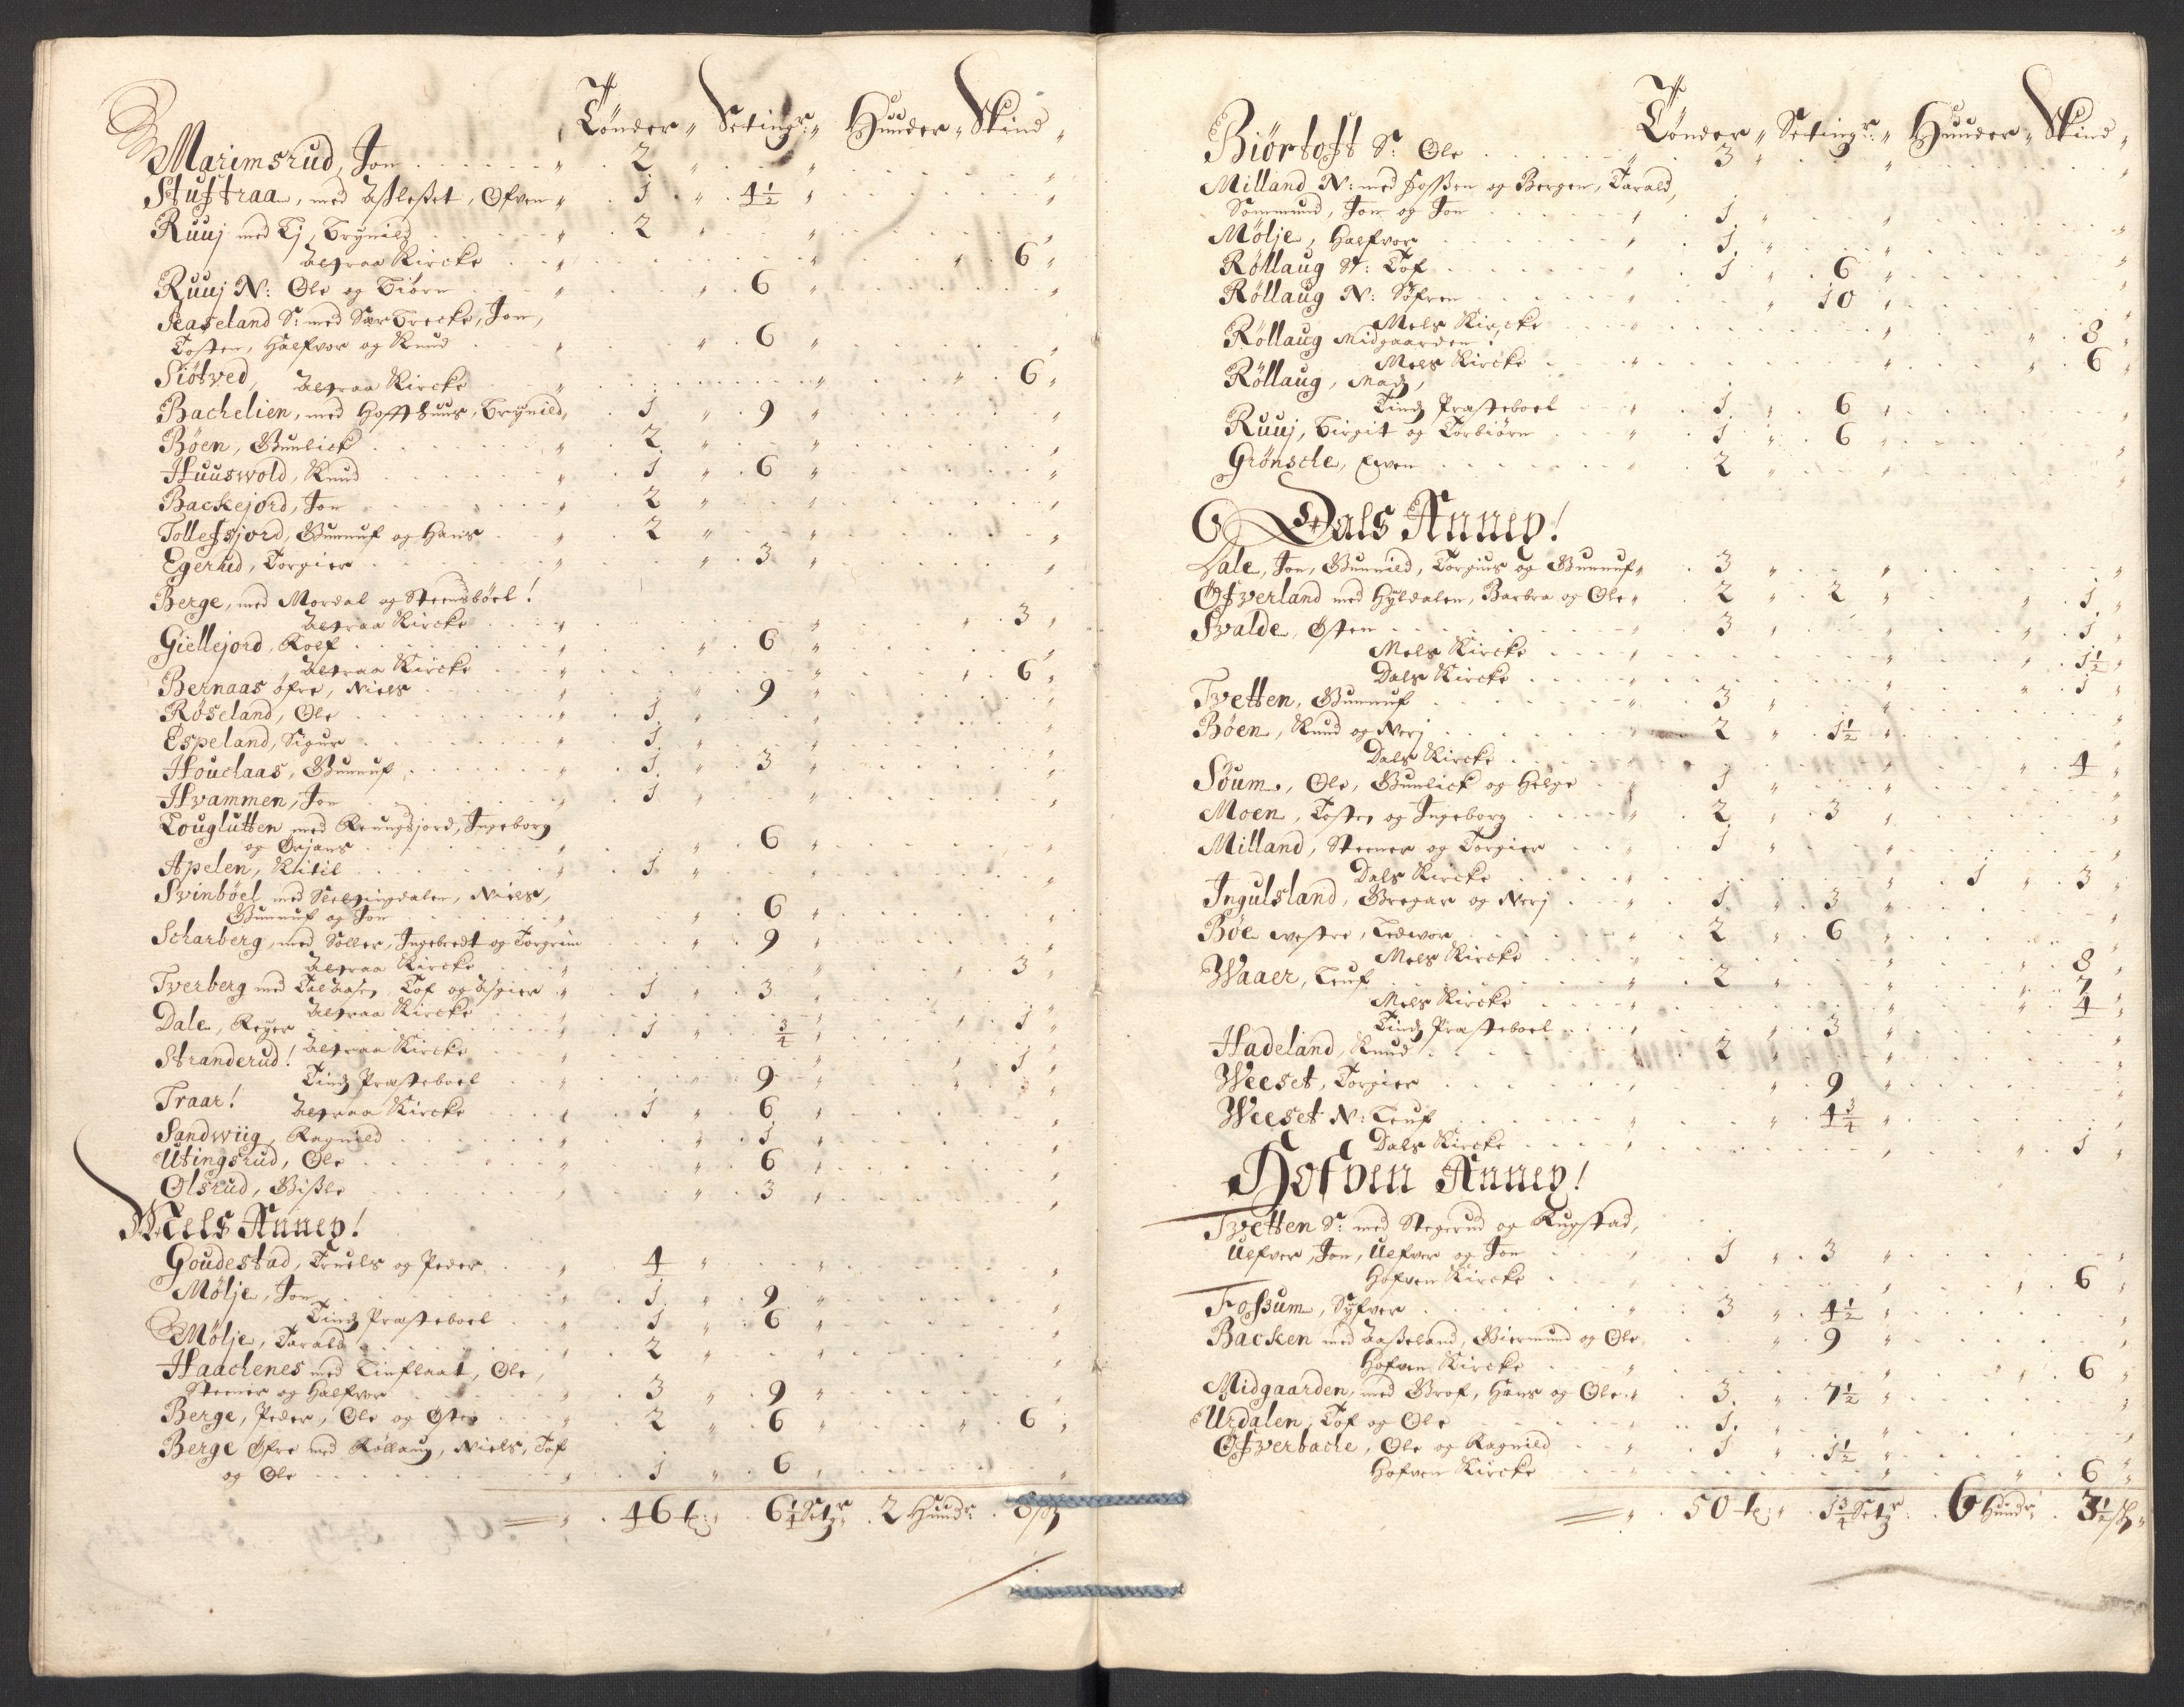 Tönder „ Setingr: „ Huuder „ Skind „
Marimsrud, Jon 2
Stuftraa, med Aslesset, Ofven 1 „ 4½
Ruuj med Ej, Brynild 2
Attraa Kircke 6
Ruuj N: Ole og Biörn 6
Haseland S: med Sarbrecke, Jon,
Tosten, Halfvor og Knud 6
Siötved, Attraa Kircke 6
Bachelien, med Hoffshuus, Brynild 1 „ 9
Böen, Gunlick 2
Huuswold, Knud 1 „ 6
Backejord, Jon 2
Tollefsjord, Gunnuf og Hans 2
Egerud, Torgier 3
Berge, med Mordal og Steensböel!
Attraa Kircke 3
Giellejord, Rolf 6
Attraa Kircke 6
Bernaas öfre, Niels 9
Röseland, Ole 1
Espeland, Sigur 1
Houclaas, Gunnuf 1 „ 3
Hvammen, Jon 1
Touglutten med Reungsjord, Ingeborg
og Örjans 6
Apelen, Kitil 1
Svinböel med Seltingdalen, Niels,
Gunnuf og Jon 6
Scharberg, med Soller, Ingebredt og Torgrim 9
Attraa Kircke 3
Tverberg med Talaasen, Tof og Asgier 1 „ 3
Attraa Kircke 1
Dale, Reyer 1 „ ¾
Stranderud! Attraa Kircke 1
Tindz Præsteboel 9
Traar! Attraa Kircke 1 „ 6
Sandwiig, Ragnild 1
Utingsrud, Ole 6
Olsrud, Gisle 3
Mels Annex!
Goudestad, Truels og Peder 4
Mölje, Jon 1 „ 9
Tindz Præsteboel 1 „ 6
Mölje, Tarald 2
Haaclenes med Tinflaat, Ole,
Steener og Halfvor 3 „ 9
Berge, Peder, Ole og Östen 2 „ 6 „ 6
Berge Öfre med Röllaug, Niels, Tof
og Ole 1 „ 6
46 t: 6¼ Setgr „ 2 Hudr: 8 sk
Tönder „ Setingr: „ Huuder „ Skind „
Biörtoft S: Ole 3
Milland N: med Fossen og Bergen, Tarald,
Sommund, Jon og Jon 1
Mölje, Halfvor 1
Röllaug S: Tof 1 „ 6
Röllaug N: Söfren 10
Mels Kircke 8
Röllaug Midgaarden!
Mels Kircke 6
Röllaug, Madz,
Tindz Præsteboel 1 „ 6
Ruuj, Birgit og Torbiörn 1 „ 6
Grönscle, Even 2
Dals Annex!
Dale, Jon, Gunnild, Torgiuls og Gunnuf 3
Öfverland med Hyldalen, Barbra og Ole 2 „ 2 „ 1
Svalde, Östen 3 „ 1
Mels Kircke 1½
Dals Kircke 1
Tvetten, Gunnuf 3
Böen, Knud og Nerj 2 „ 1½
Dals Kircke 4
Söum, Ole, Gunlick og Helge 1
Moen, Tosten og Ingeborg 2 „ 3
Milland, Steener og Torgier 1
Dals Kircke 1 „ 3
Ingulsland, Gregar og Nerj 1 „ 3
Böe westre, Tedwor 2 „ 6
Mels Kircke 8
Waaer, Leuf 2 „ 7
Mels Kircke 4
Tindz Præsteboel 3
Hadeland, Knud 2
Weeset, Torgier 9
Weeset N: Leuf 4¾
Dals Kircke 1
Hofven Annex!
Tvetten S: med Stegerud og Rugstad,
Ulfver, Jon, Ulfver og Jon 1 „ 3
Hofven Kircke 6
Fossum, Syfver 3 „ 4½
Backen med Aasseland, Giermund og Ole 9
Hofven Kircke 6
Midgaarden, med Grof, Hans og Ole 3 „ 7½
Urdalen, Tof og Ole 1
Öfverbacke, Ole og Ragnild 1 „ 1½
Hofven Kircke 6
50 t: 1¾ Setgr: 6 Hudr: 3½ sk